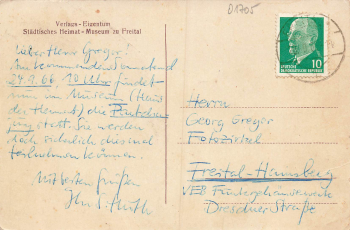 D1705
Verlags-Eigentum
Städtisches Heimat-Museum zu Freital
Lieber Herr Gregor!
Am kommenden Sonnabend
24.9.66 10 Uhr findet
nun im Museum (Haus
der Heimat) die
statt. Sie werden
doch sicherlich diesmal
teilnehmen können.
Mit besten Grüßen
DEUTSCHE
DEMOKRATISCHE REPUBLIK
10
Herrn
Georg Gregor
Fotozirkel
Freital-Hainsberg
VEB
Dresdner Straße